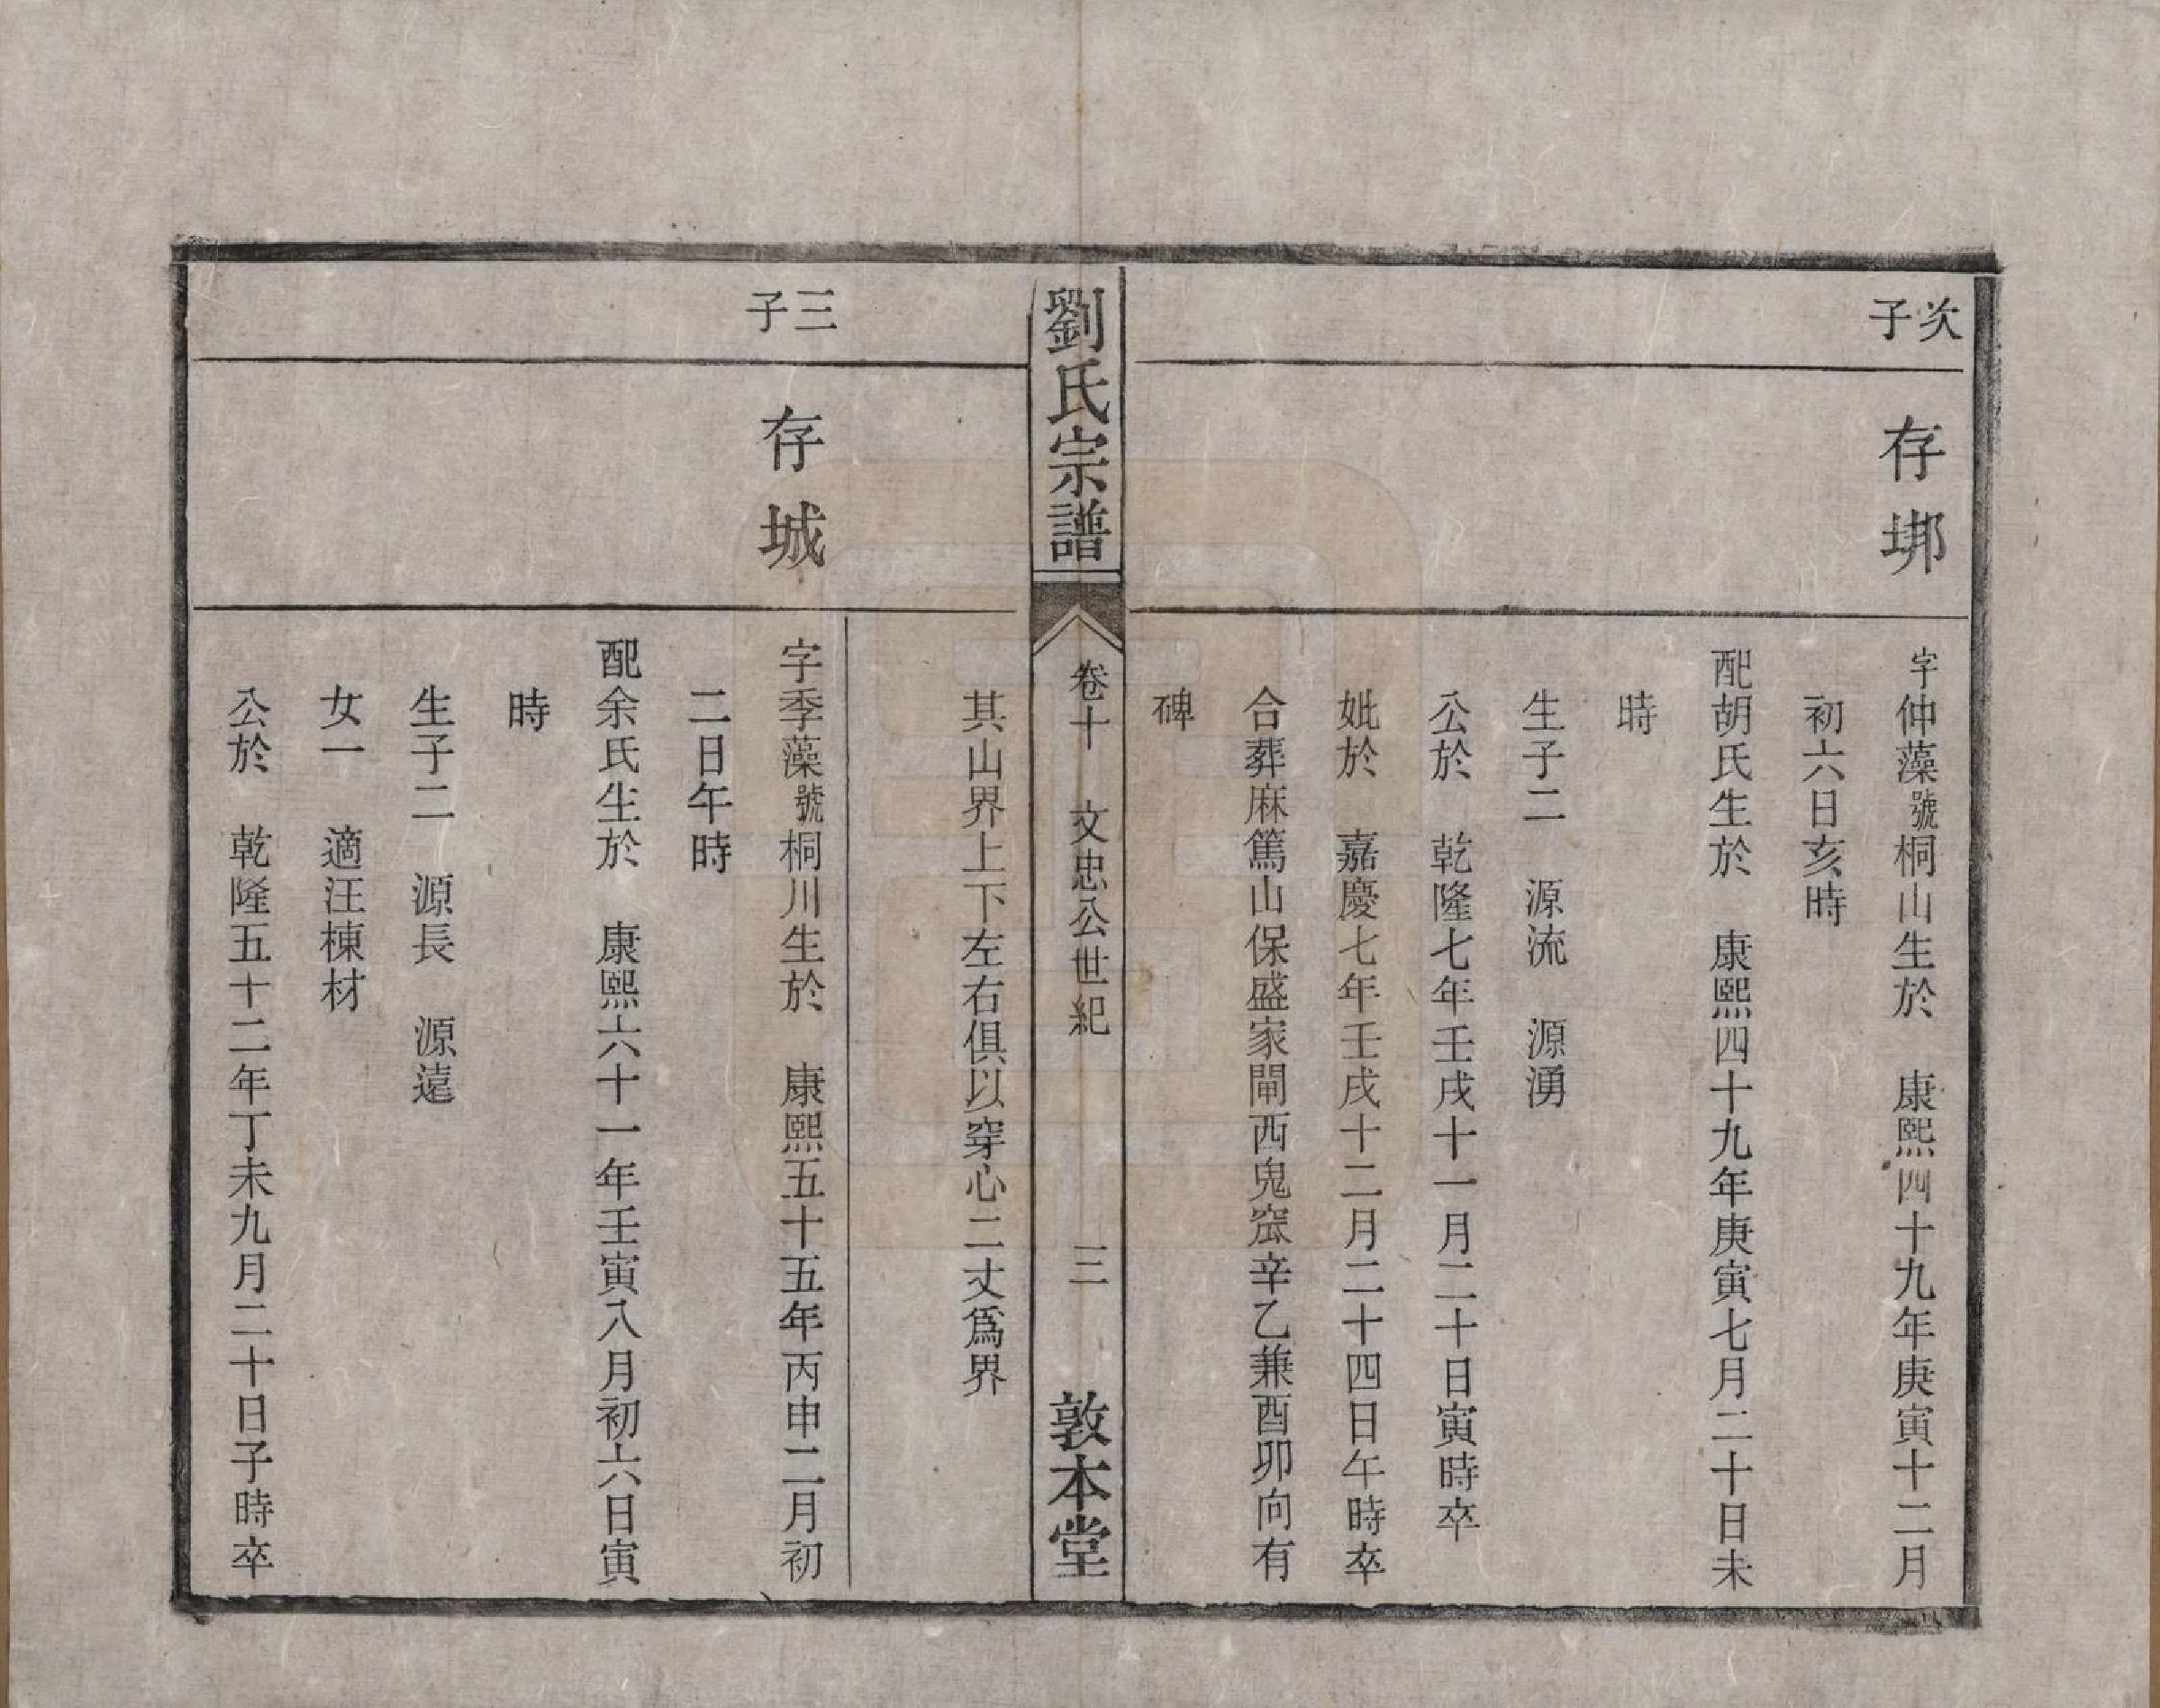 次子
存垹
字仲藻號桐山生於　康熙四十九年庚寅十二月
初六日亥時
配胡氏生於　康熙四十九年庚寅七月二十日未
時
生子二　源流　源湧
公於　乾隆七年壬戌十一月二十日寅時卒
妣於　嘉慶七年壬戌十二月二十四日午時卒
合葬麻篤山保盛家閘西鬼窊辛乙兼酉卯向有
碑
劉氏宗譜
卷十　文忠公世紀
三
敦本堂
其山界上下左右俱以穿心二丈爲界
三子
存城
字季藻號桐川生於　康熙五十五年丙申二月初
二日午時
配余氏生於　康熙六十一年壬寅八月初六日寅
時
生子二　源長　源遠
女一　適汪棟材
公於　乾隆五十二年丁未九月二十日子時卒